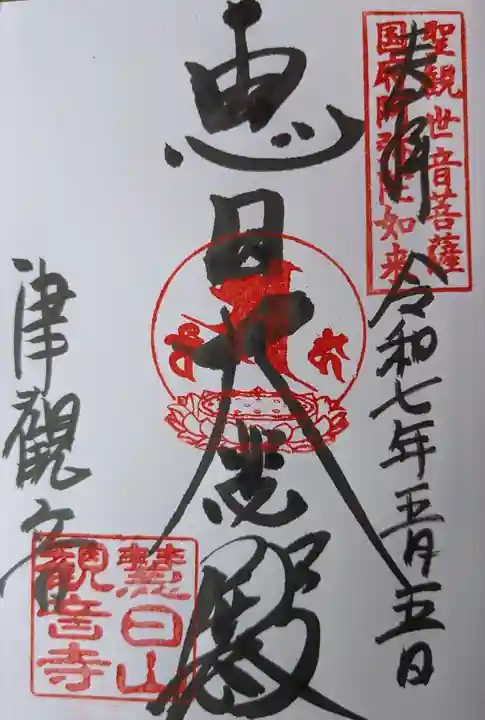 聖観世音菩薩
国府阿弥陀如来
奉拝 令和七年五月五日
恵日大悲殿
津観音
慧日山
観音寺